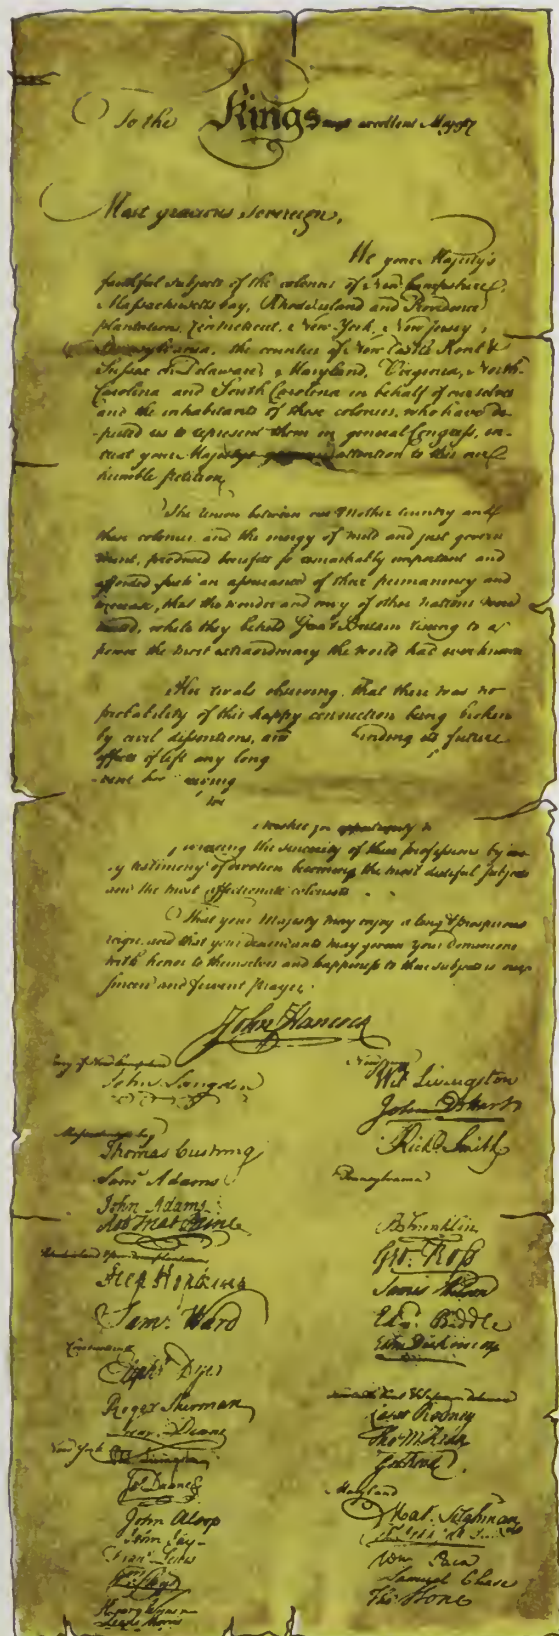 To the Kings most excellent Majesty
Most gracious sovereign,
We your Majesty's
faithful subjects of the colonies of New hampshire,
Massachusetts bay, Rhode island and Providence
plantations, Connecticut, New-York, New Jersey,
Pennsylvania, the counties of New Castle Kent &
Sussex on Delaware, Maryland, Virginia, North-
Carolina and South Carolina in behalf of ourselves
and the inhabitants of these colonies, who have de-
-puted us to represent them in general Congress, en-
treat your Majestys gracious attention to this our
humble petition.
The union between our Mother Country and
these colonies, and the energy of mild and just govern
ment, produced benefits so remarkably important and
afforded such an assurance of their permanency and
increase, that the wonder and envy of other nations were
excited, while they beheld Great Britain rising to a
power the most extraordinary the world had ever known
Her rivals observing, that there was no
probability of this happy connection being broken
by civil dissentions, and its future
effects if left any long
wishes for opportunity to
the sincerity of these professions by
testimony of devotion becoming the most dutiful subjects
and the most affectionate colonists.
That your Majesty may enjoy a long & prosperous
reign, and that your descendants may govern your dominions
with honor to themselves and happiness to their subjects is our
sincere and fervent prayer.
John Hancock
John Langdon
Massachusetts bay
Thomas Cushing
Saml Adams
John Adams
Rob Treat Paine
Step Hopkins
Sam: Ward
Connecticut
Elipht Dyer
Roger Sherman
Silas Deane
New York
Phil. Livingston
Jas Duane
John Alsop
John Jay
Frans Lewis
Lewis Morris
New Jersey
Wil Livingston
John D Hart
Richd Smith
Pennsylvania
B Franklin
Geo: Ross
James Wilson
Edwd Biddle
John Dickinson
Caesar Rodney
Tho M:Kean
Geo Read
Maryland
Mat. Tilghman
Wm Paca
Samuel Chase
Tho Stone